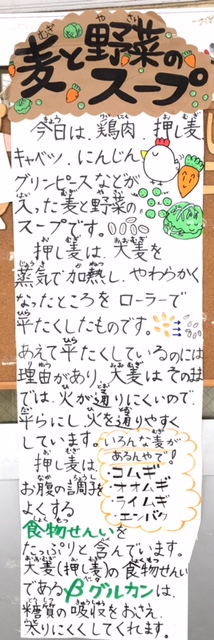 麦と野菜の
スープ
今日は、鶏肉、押し麦
キャベツ、にんじん
グリンピースなどが
入った麦と野菜の
スープです。
押し麦は、大麦を
蒸気で加熱し、やわらかく
なったところを ローラーで
平たくしたものです。
あえて平たくしているのには
理由があり、大麦はそのま
では、火が通りにくいので、
平らにし、火を通りやすく
しています。
いろんな麦が
あるんやで!
コムギ
オオムギ
ライムギ
エンバク
押し麦は、
お腹の調子を
よくする
食物せんいを
たっぷりと含んでいます。
大麦(押し麦)の食物せんい
であるβグルカンは、
糖質の吸収をおさえ、
太りにくくしてくれます。